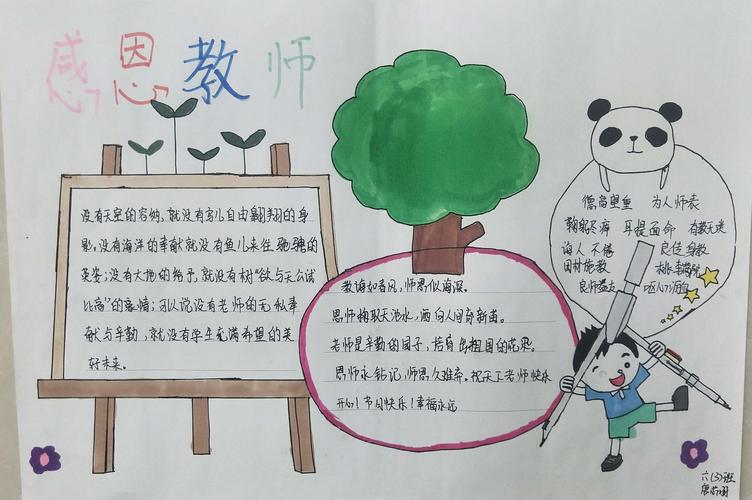 感恩教师
没有天空的容纳，就没有鸟儿自由翱翔的身
影；没有海洋的奉献就没有鱼儿来往驰骋的
英姿；没有大地的给予，就没有树“欲与天公试
比高”的豪情；可以说没有老师的无私奉
献与辛勤，就没有学生充满希望的美
好未来。
教诲如春风，师恩似海深。
恩师掬取天池水，洒向人间育新苗。
老师是辛勤的园丁，培育
祖国的花朵。
恩师永铭记，师恩久难弃，祝天下老师快乐
开心！节日快乐！幸福永远
德高望重 为人师表
耳提面命 有教无类
诲人不倦 良
因材施教 桃李满院
良师益友
六(3)班